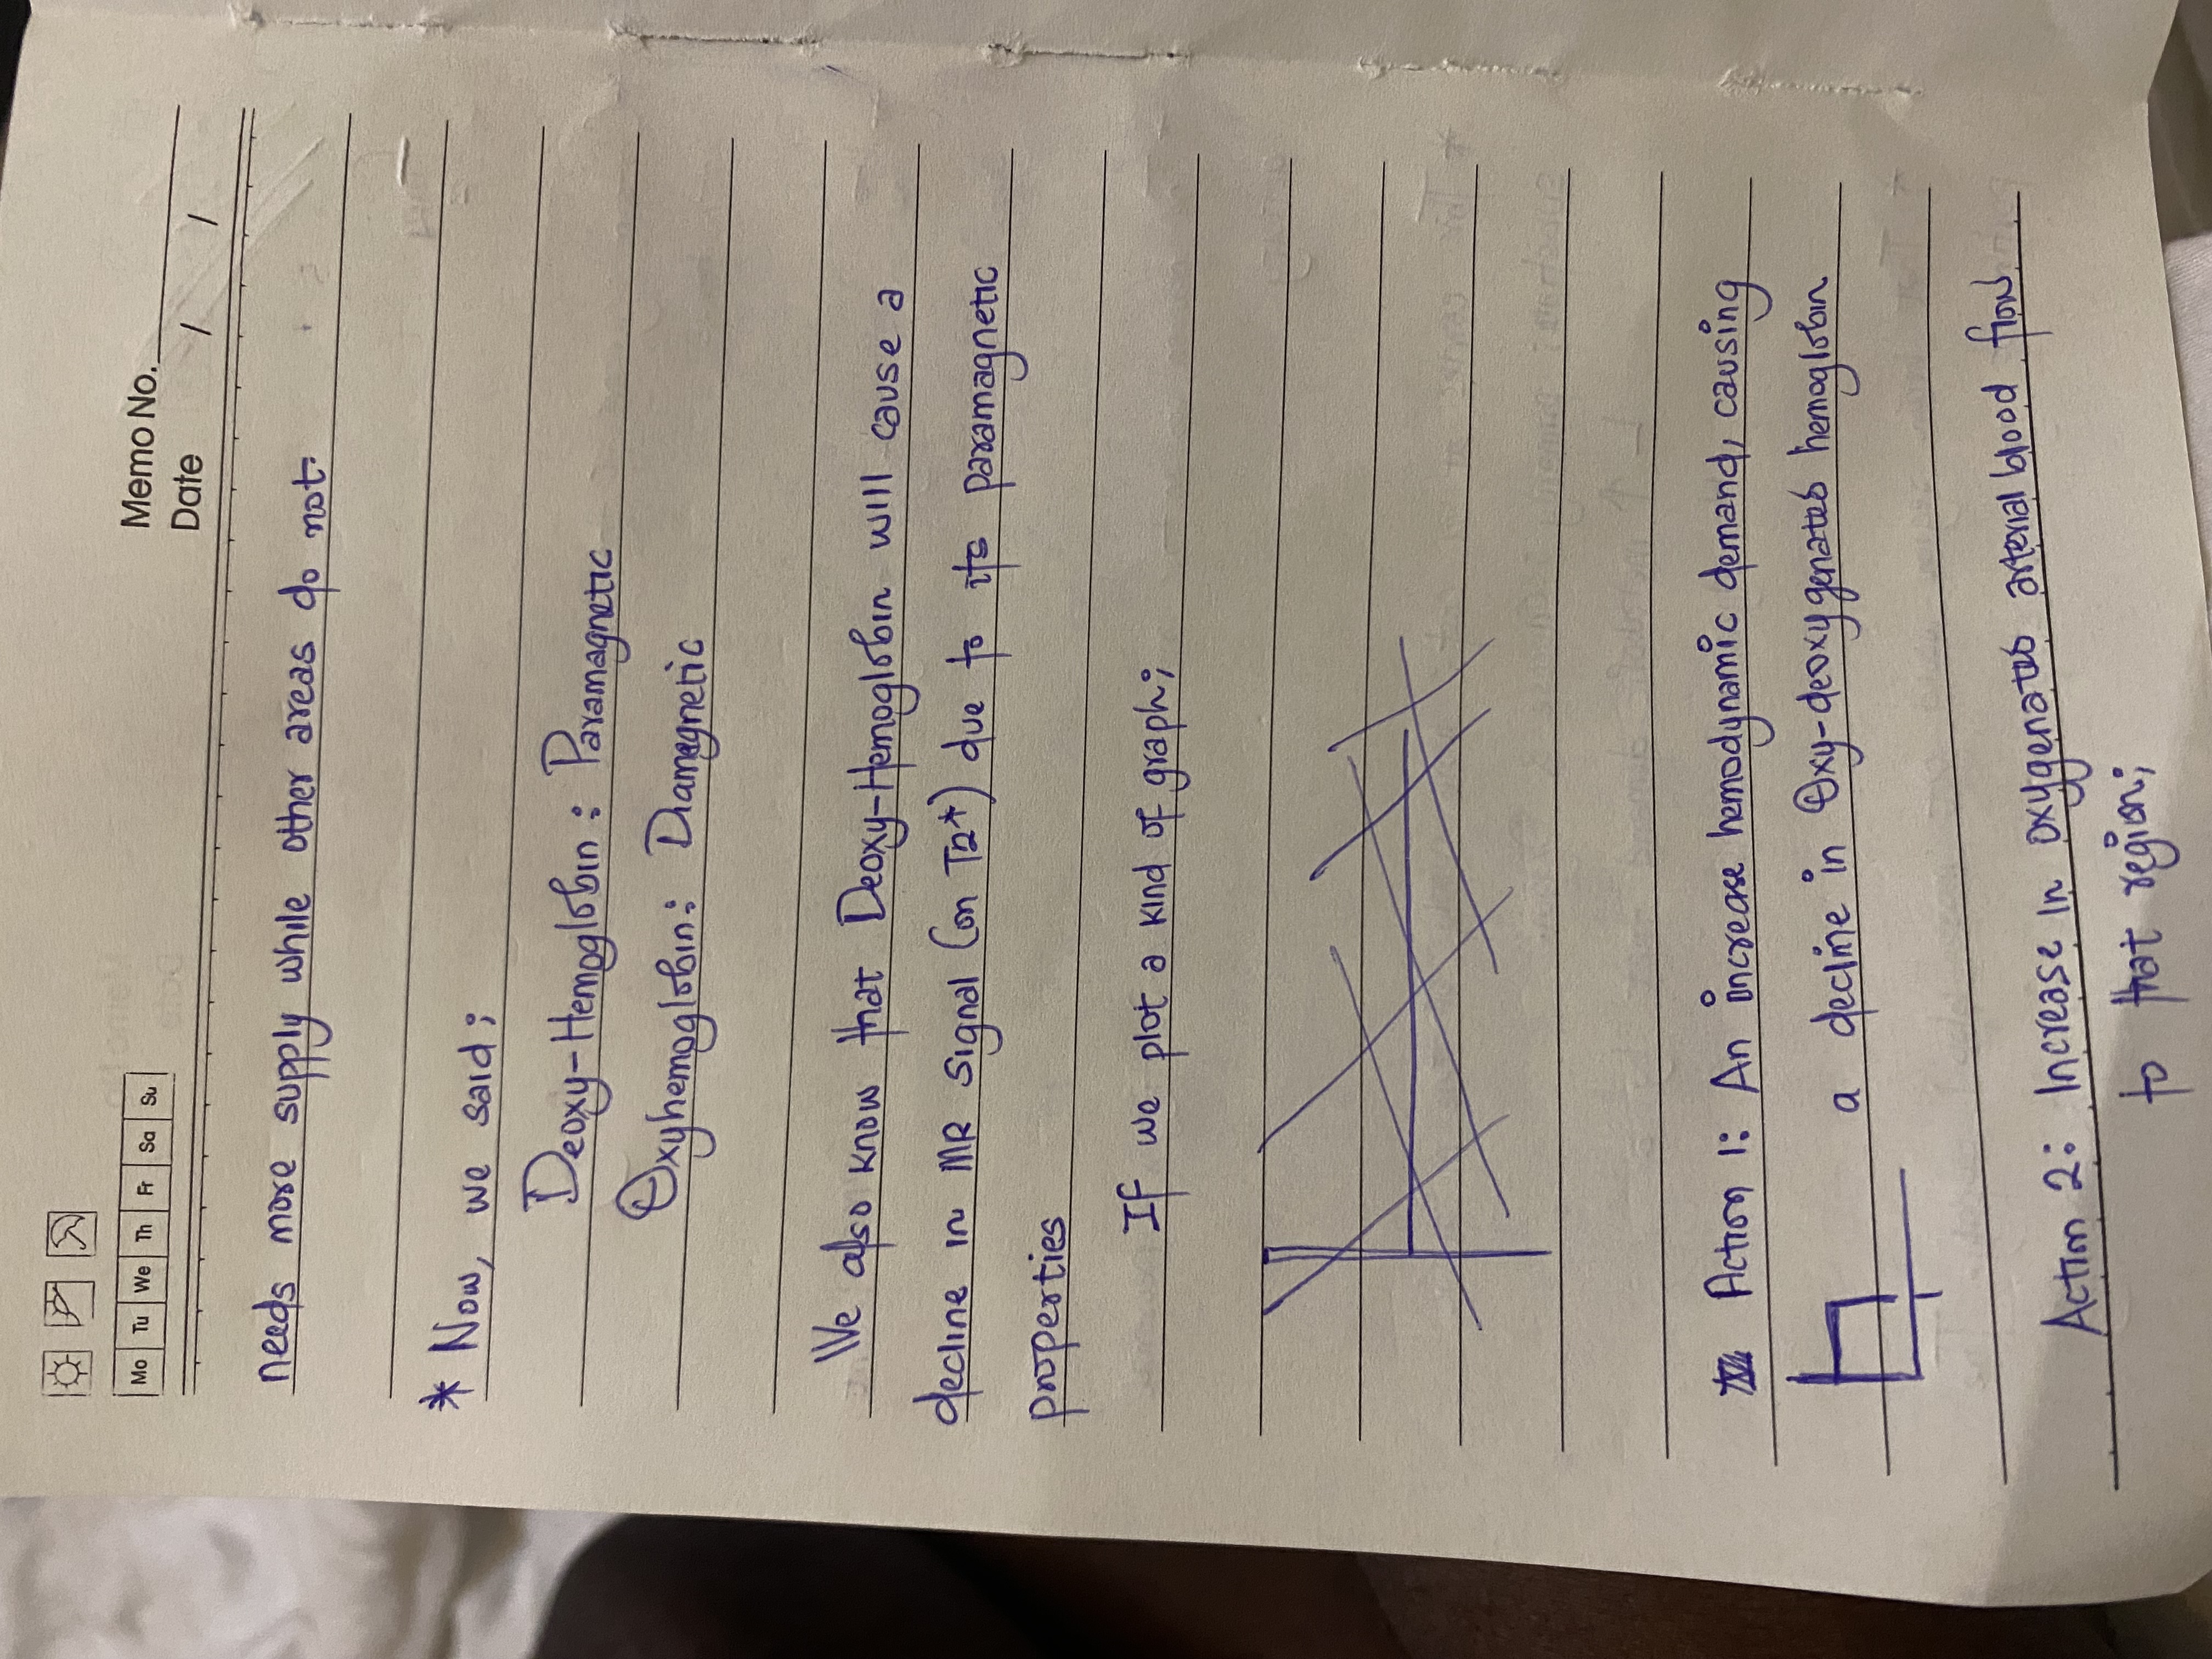 Memo No.
Date / /
Mo Tu We Th Fr Sa Su
needs more supply while other areas do not.
* Now, we said;
Deoxy-Hemoglobin : Paramagnetic
Oxyhemoglobin: Diamagnetic
We also know that Deoxy-Hemoglobin will cause a
decline in MR signal (on T2*) due to its paramagnetic
properties
If we plot a kind of graph;
Action 1: An increase hemodynamic demand, causing
a decline in Oxy-deoxygenated hemoglobin
Action 2: Increase in oxygenated arterial blood flow
to that region;